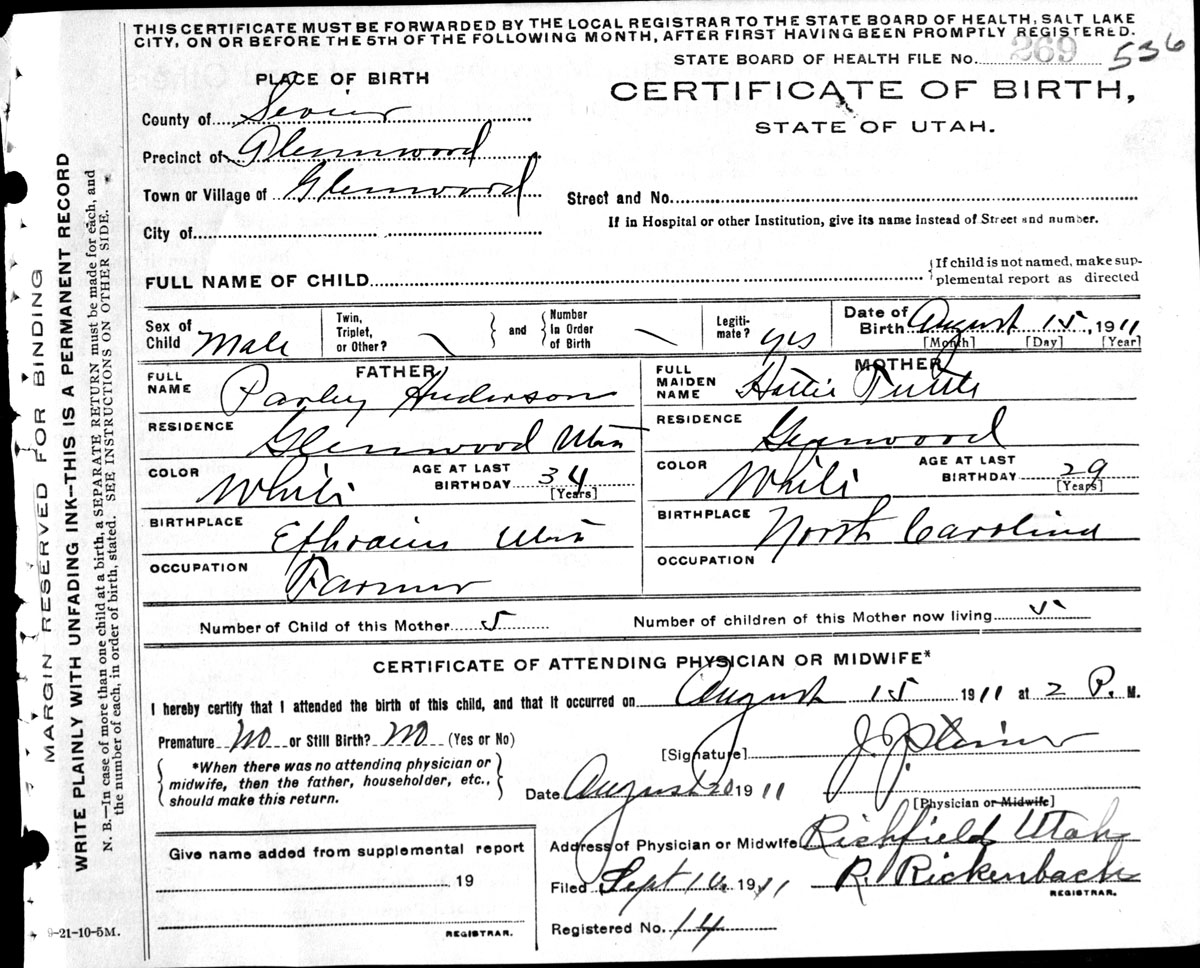 THIS CERTIFICATE MUST BE FORWARDED BY THE LOCAL REGISTRAR TO THE STATE BOARD OF HEALTH, SALT LAKE
CITY, ON OR BEFORE THE 5TH OF THE FOLLOWING MONTH, AFTER FIRST HAVING BEEN PROMPTLY REGISTERED.
STATE BOARD OF HEALTH FILE No. 269 536
PLACE OF BIRTH
CERTIFICATE OF BIRTH,
STATE OF UTAH.
County of Sevier
Precinct of Glennwood
Town or Village of Glenwood
Street and No.
If in Hospital or other Institution, give its name instead of Street and number.
City of
FULL NAME OF CHILD
{If child is not named, make sup-
plemental report as directed
Sex of Child Male
Twin, Triplet, or Other?
and
Number In Order of Birth
Legiti-mate? yes
Date of Birth August 15, 1911
[Month] [Day] [Year]
FATHER
FULL NAME Parley Anderson
RESIDENCE Glenwood Utah
COLOR White
AGE AT LAST BIRTHDAY 34
[Years]
BIRTHPLACE Ephraim Utah
OCCUPATION Farmer
MOTHER
FULL MAIDEN NAME Hattie Tuttle
RESIDENCE Glenwood
COLOR White
AGE AT LAST BIRTHDAY 29
[Years]
BIRTHPLACE North Carolina
OCCUPATION
Number of Child of this Mother 5
Number of children of this Mother now living 5
CERTIFICATE OF ATTENDING PHYSICIAN OR MIDWIFE*
I hereby certify that I attended the birth of this child, and that it occurred on August 15 1911 at 2 P. M.
Premature No or Still Birth? No (Yes or No)
{*When there was no attending physician or
midwife, then the father, householder, etc.,
should make this return.}
[Signature] J. J. Steiner
Date August 20 1911
[Physician or Midwife]
Address of Physician or Midwife Richfield Utah
Filed Sept 1911 R. Rickenbach
REGISTRAR.
Registered No. 14
Give name added from supplemental report
19
REGISTRAR.
9-21-10-5M.
MARGIN RESERVED FOR BINDING
WRITE PLAINLY WITH UNFADING INK—THIS IS A PERMANENT RECORD
N. B.—In case of more than one child at a birth, a SEPARATE RETURN must be made for each, and
the number of each, in order of birth, stated. SEE INSTRUCTIONS ON OTHER SIDE.